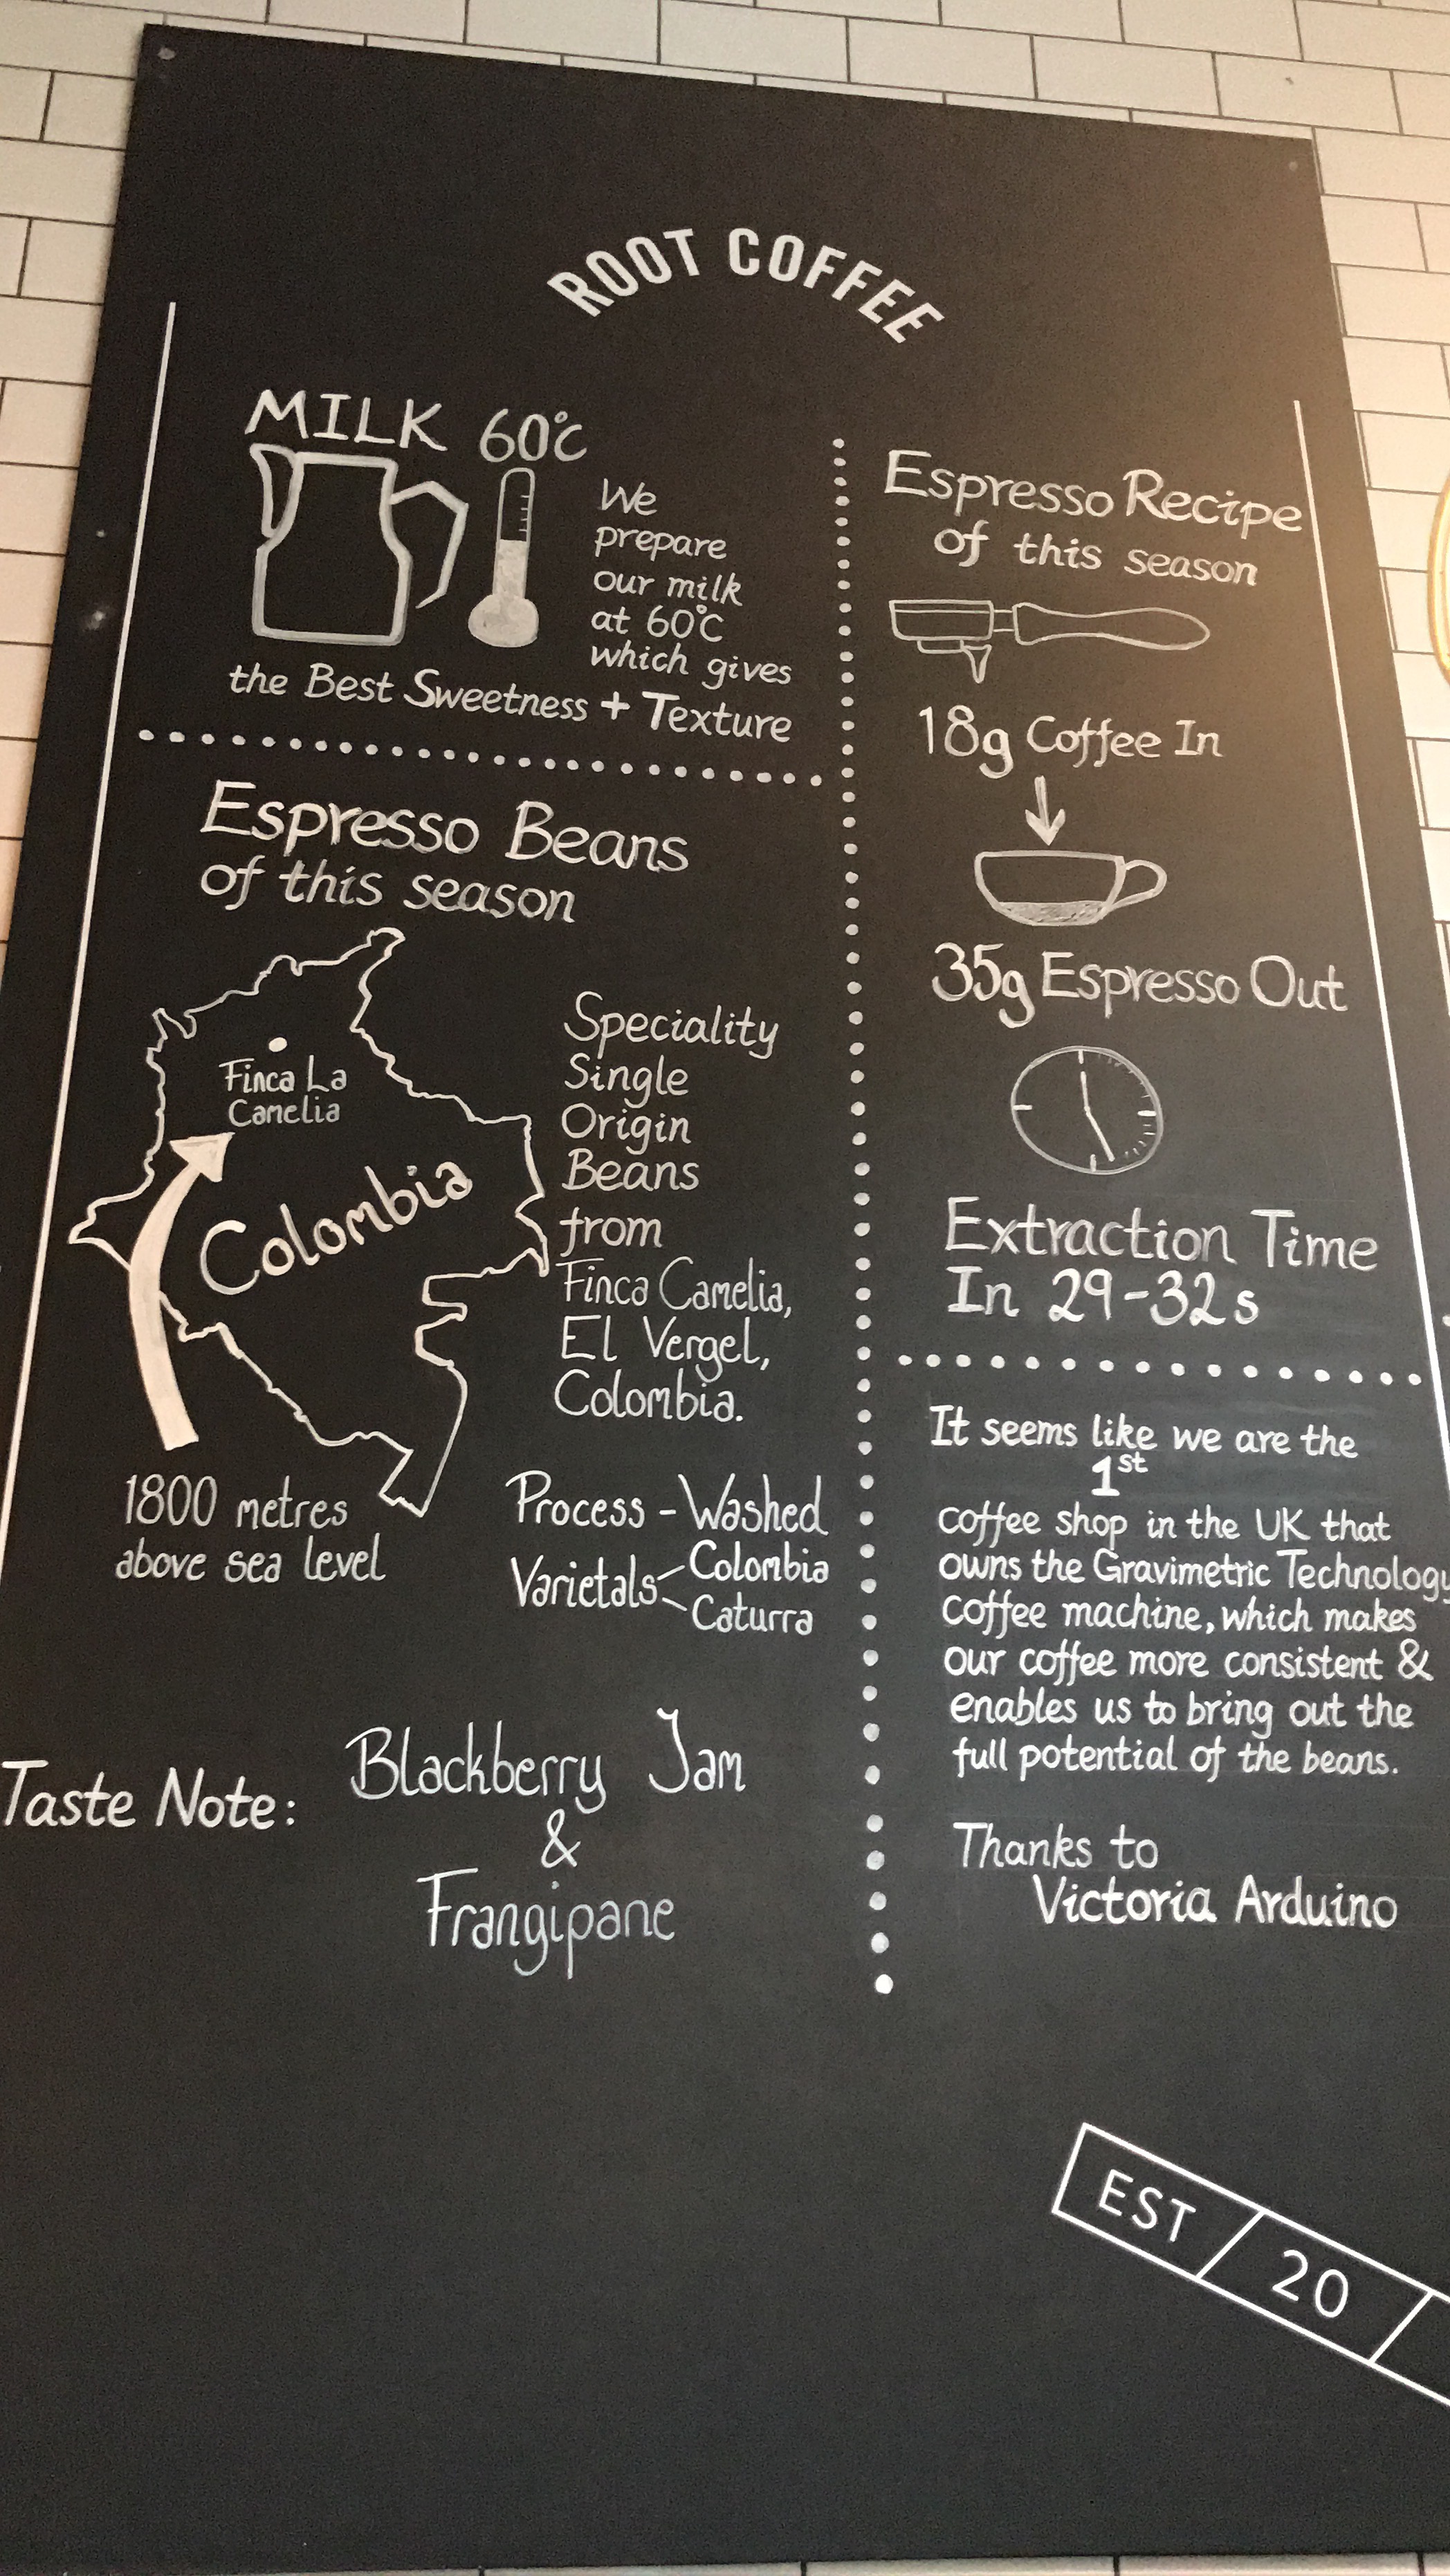 ROOT COFFEE
MILK 60°C
We
prepare
our milk
at 60°C
which gives
the Best Sweetness + Texture
Espresso Beans
of this season
Finca La
Camelia
Colombia
1800 metres
above sea level
Speciality
Single
Origin
Beans
from
Finca Camelia,
El Vergel,
Colombia.
Process - Washed
Varietals < Colombia
Caturra
Taste Note: Blackberry Jam
&
Frangipane
Espresso Recipe
of this season
18g Coffee In
35g Espresso Out
Extraction Time
In 29-32s
It seems like we are the
1st
coffee shop in the UK that
owns the Gravimetric Technology
coffee machine, which makes
our coffee more consistent &
enables us to bring out the
full potential of the beans.
Thanks to
Victoria Arduino
EST / 20 /